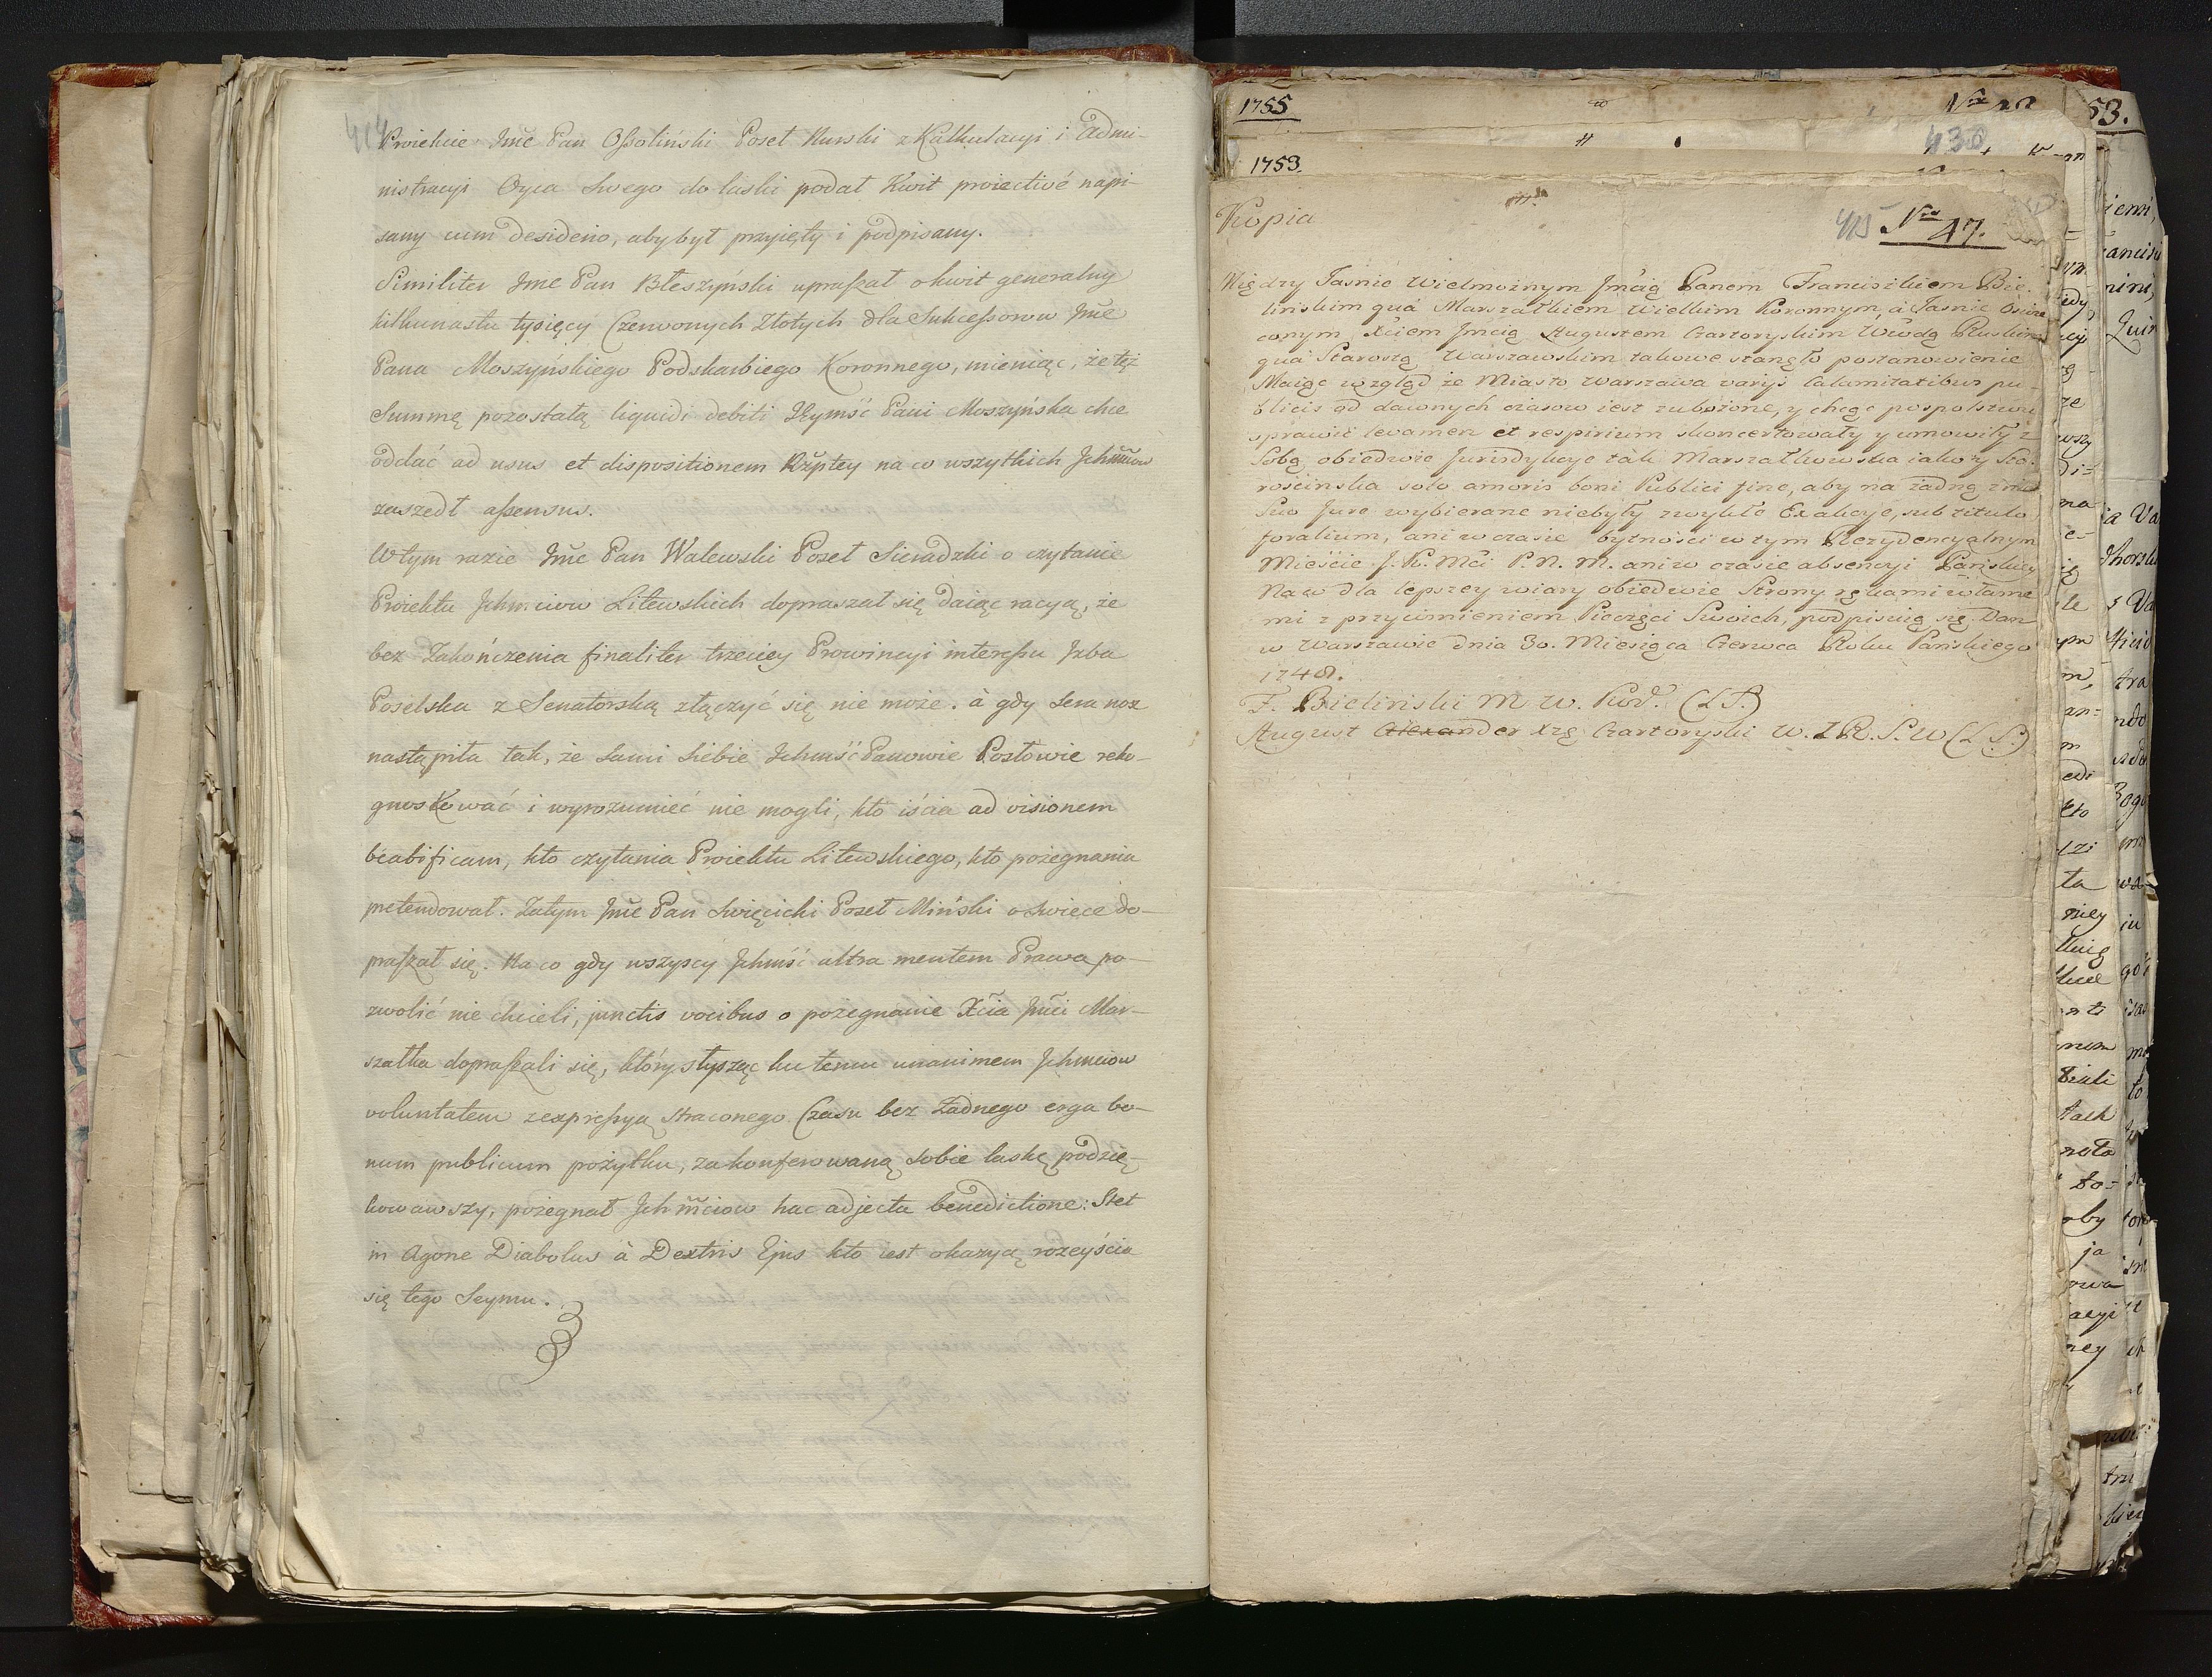 414
Proiekcie Jmć Pan Ossoliński Poseł Nurski z Kalkulacyi i Admi-
nistracyi Oyca Swego do laski podał Kwit proiectivé napi-
sany cum desiderio, aby był przyięty i podpisany.
Similiter Jmć Pan Błeszyński upraszał o kwit generalny
kilkunastu tysięcy Czerwonych Złotych dla Sukcessorow Jmć
Pana Moszyńskiego Podskarbiego Koronnego, mieniąc, że tęż
Summę pozostałą liquidi debiti Jeymść Pani Moszyńska chce
oddać ad usus et dispositionem Rzptey na co wszytkich Jchmciow
zaszedł assensus.
W tym razie Jmć Pan Walewski Poseł Sieradzki o czytanie
Proiektu Jchmciow Litewskich dopraszał się daiąc racyą, że
bez Zakończenia finaliter trzeciey Prowincyi interessu Jzba
Poselska z Senatorską złączyć się nie może. à gdy sera nox
nastąpiła tak, że sami siebie Jchmść Panowie Posłowie reko-
gnoskować i wyrozumieć nie mogli, kto iścia ad visionem
beatificam, kto czytania Proiektu Litewskiego, kto pożegnania
pretendował. Zatym Jmć Pan Swięcicki Poseł Miński o swiece do-
praszał się. Na co gdy wszyscy Jchmść ultra mentem Prawa po-
zwolić nie chcieli, junctis vocibus o pożegnanie Xcia Jmci Mar-
szałka dopraszali się, który słysząc ku temu unanimem Jchmciow
voluntatem z expressyą straconego Czasu bez Żadnego erga bo-
num publicum pożytku, za konferowaną sobie laskę podzię-
kowawszy, pożegnał Jchmciow hac adjecta benedictione: Stet
in Agone Diabolus à Dextris Ejus kto iest okazyą rozeyścia
się tego Seymu.
1755
430
1753.
Kopia
415 Nro 47.
Między Jaśnie Wielmożnym Jmcią Panem Franciszkiem Bie-
lińskim quá Marszałkiem Wielkim Koronnym, a Jaśnie Oświe
conym Xciem Jmcią Augustem Czartoryskim Wwdą Ruskim
quá Starostą Warszawskim takowe stanęło postanowienie
Maiąc wzgląd że Miasto Warszawa varijs Calamitatibus pu-
blicis od dawnych czasow iest zubożone, y chcąc pospolstwu
sprawić levamen et respirium skoncertowały y umowiły z
Sobą obiedwie Jurisdykcye tak Marszałkowska iako y Sta-
rościnska solo amoris boni Publici fine, aby na żadną
Suo Jure wybierane niebyły zwykłe Exakcye, sub titulo
foralium, ani w czasie bytności w tym Rezydencyalnym
Mieście J. K. Mci P. N. M. ani w czasie absencyi Pańskiey
Na co dla lepszey wiary obiedwie Strony rękami własne
mi z przyciśnieniem Pieczęci Swoich, podpisuią się. Dan
w Warszawie Dnia 30. Miesiąca Czerwca Roku Pańskiego
1748.
F. Bieliński M W. Kor. (L S.)
August Alexander Xże Czartoryski W. Z R. S. W (L S.)
53.